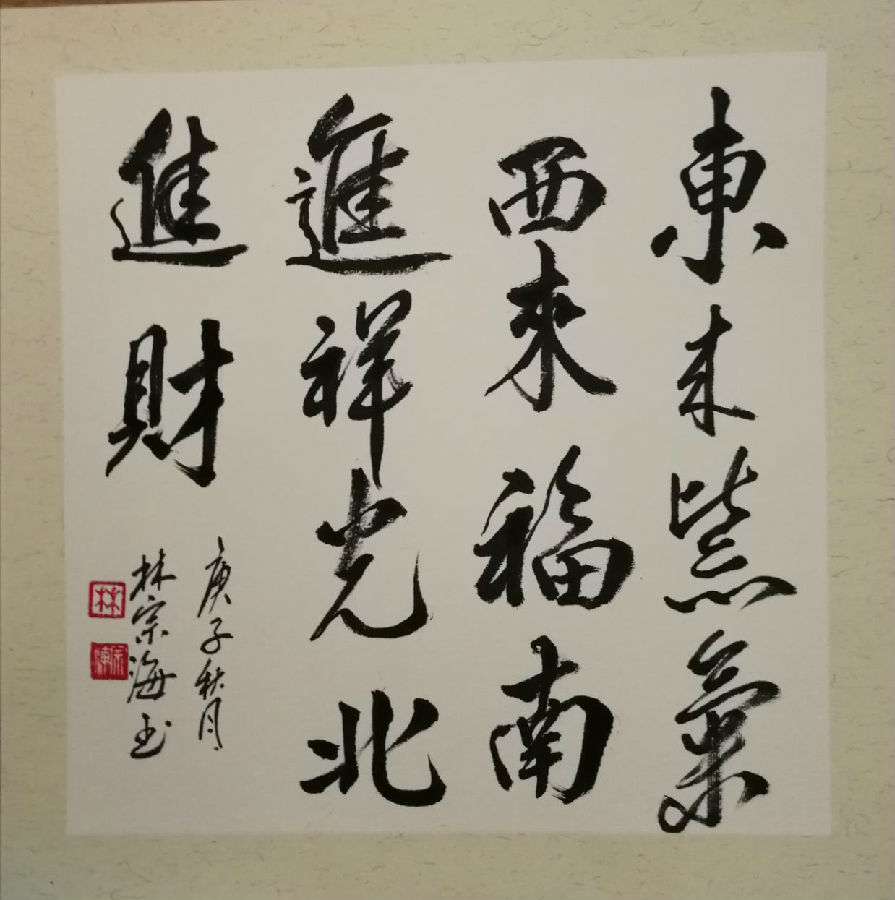 東来紫氣
西來福南
進祥光北
進財
庚子秋月
林宗海玉
林